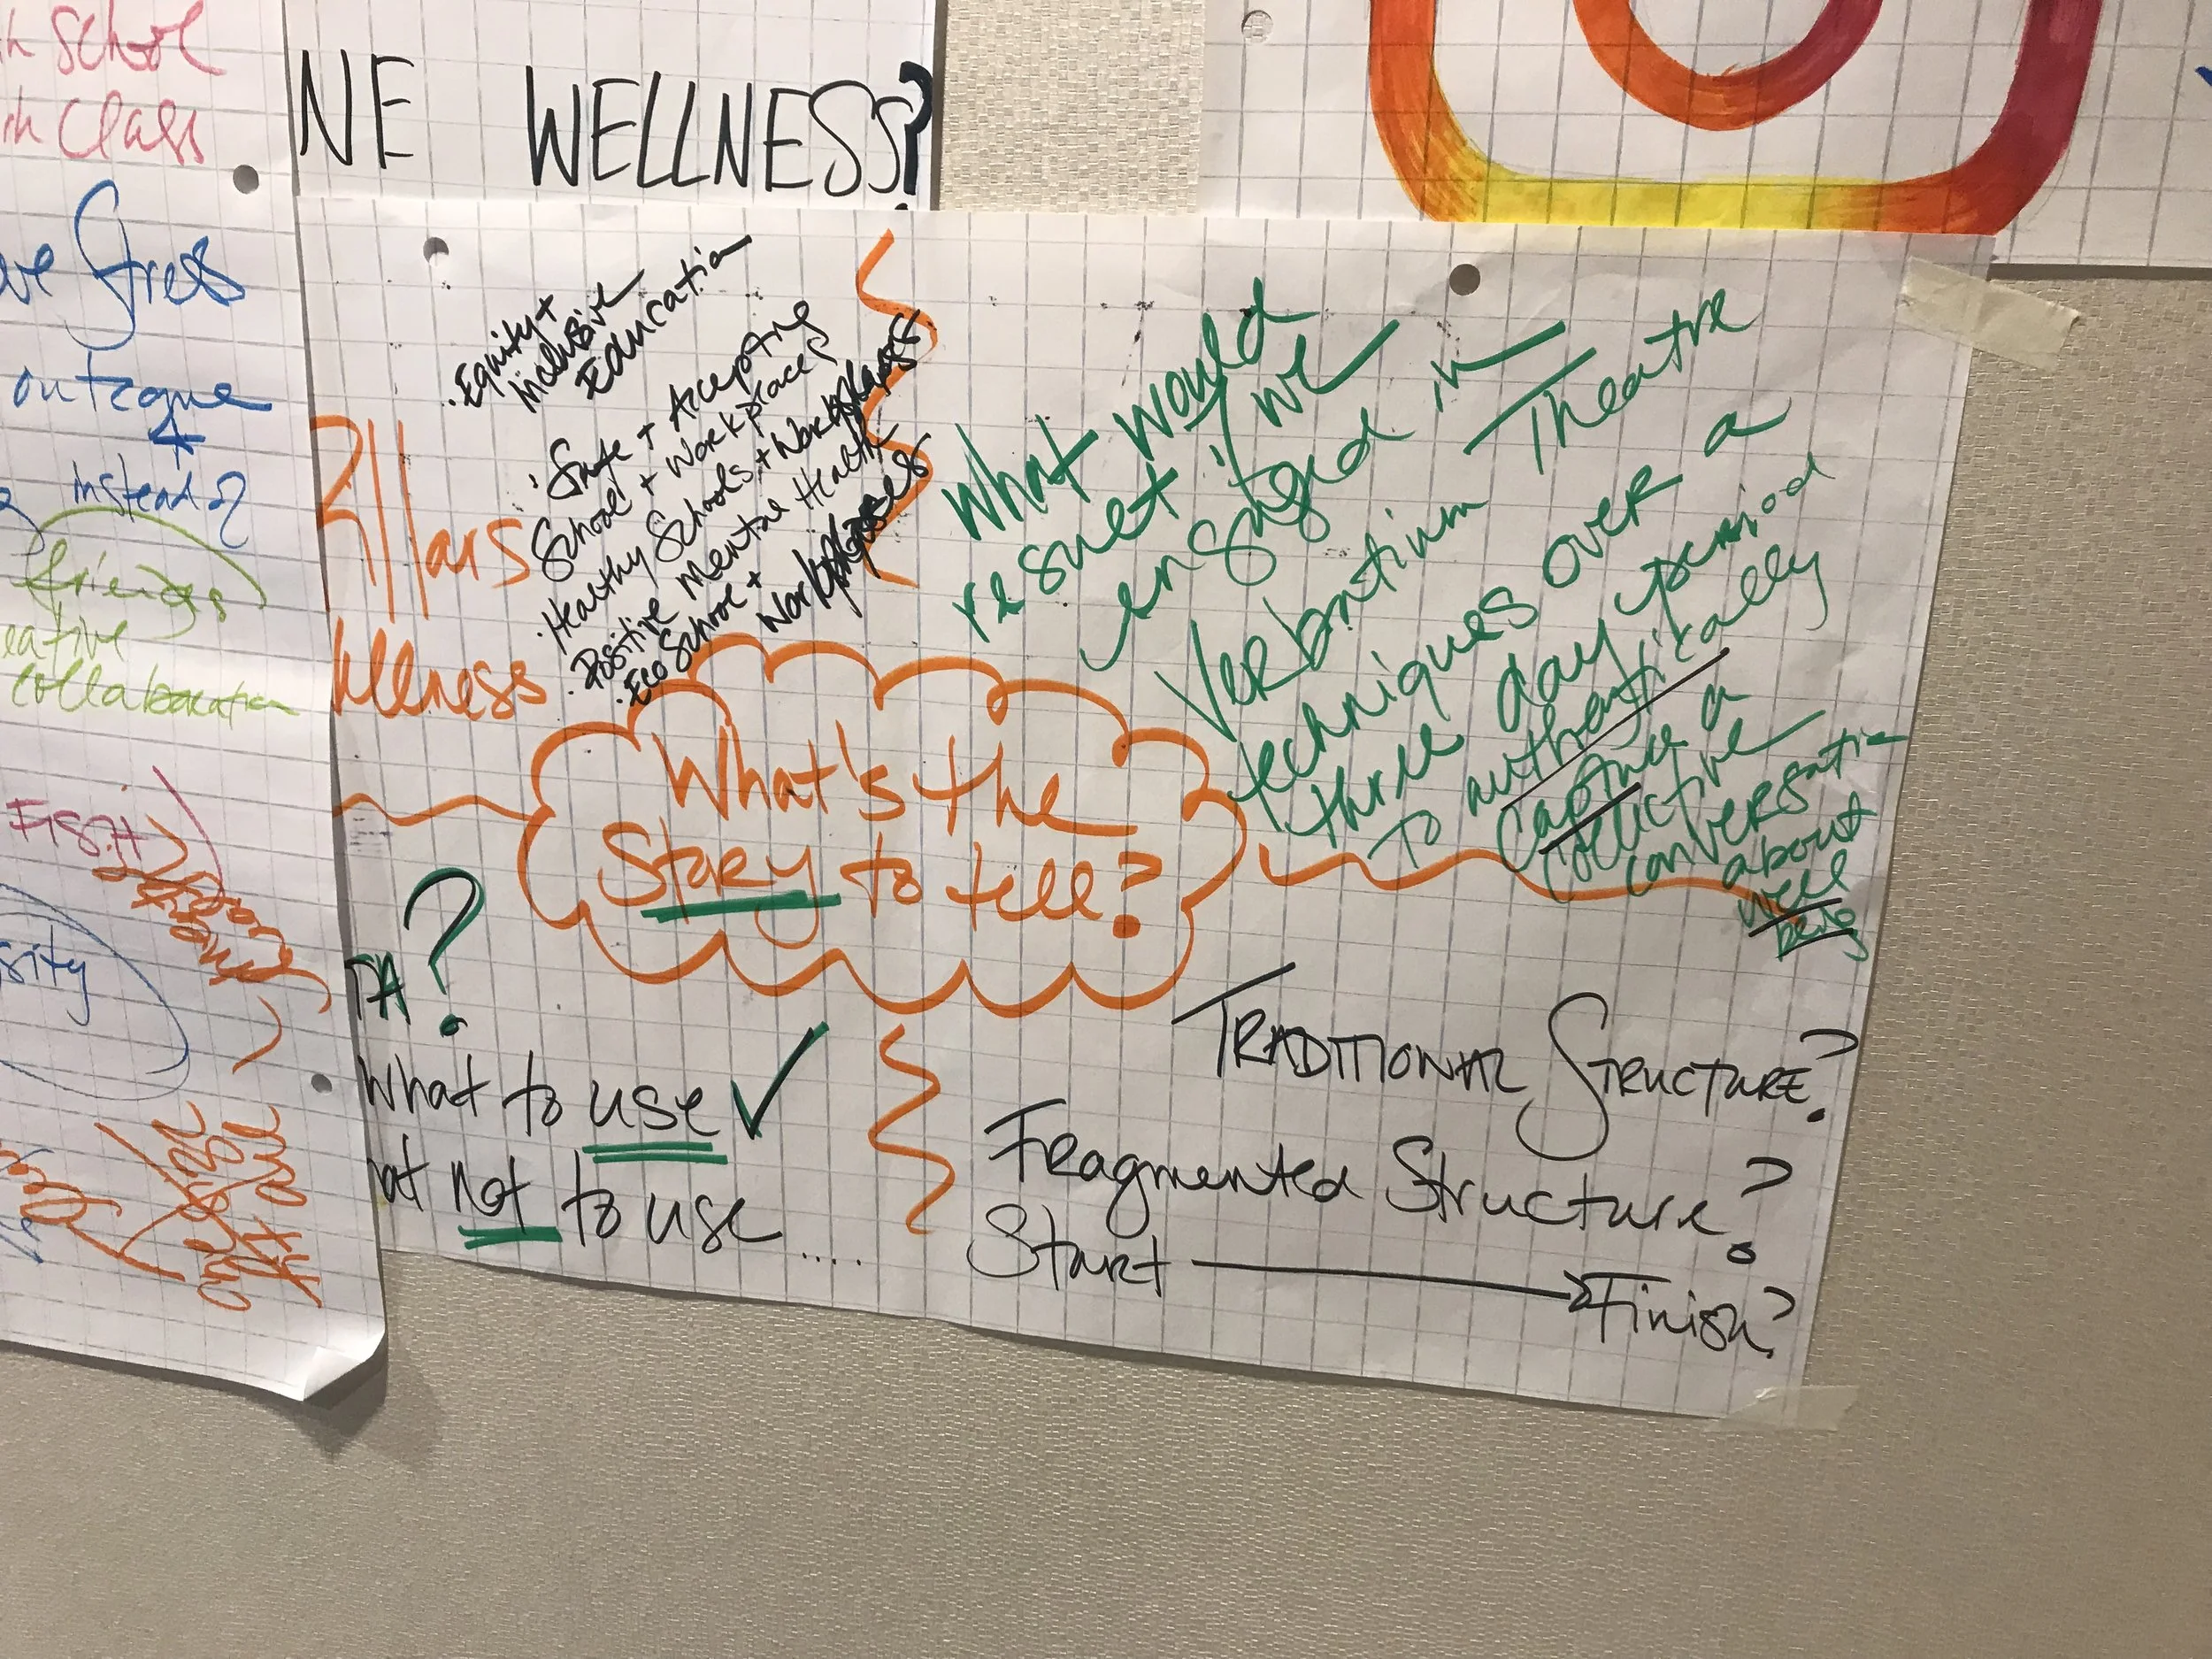 School
Class
Stress
outcome
instead of
friends
collaboration
NE WELLNESS?
Equity +
Inclusive
Education
Safe + Accepting
School + Workplaces
Healthy Schools + Workplaces
Positive Mental Health
Eco School +
Workplaces
llars
llness
What would
result if we
engaged in
Verbatium Theatre
techniques over a
three day period
To authentically
capture a
collective
conversation
about
well
being
What's the
Story to tell?
TA?
What to use ✓
at not to use ....
TRADITIONAL STRUCTURE?
Fragmented Structure?
Start → Finish?